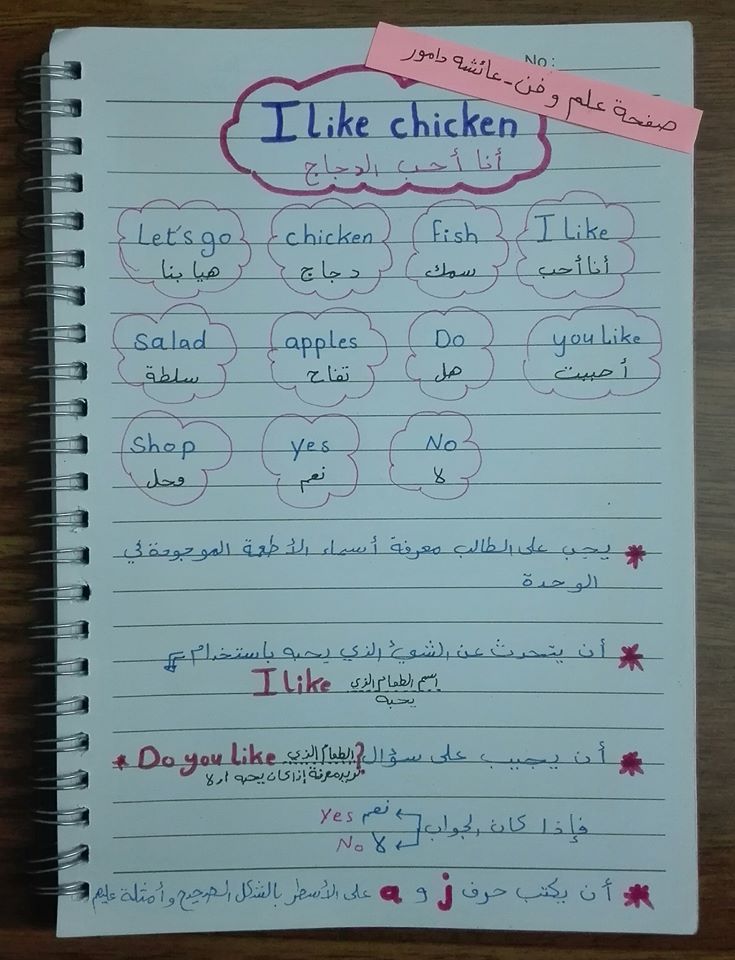 No:
صفحة علم وفن-عائشه دامور
I like chicken
أنا أحب الدجاج
Let's go chicken fish I like
هيا بنا دجاج سمك أنا أحب
salad apples Do you like
سلطة تفاح هل أحببت
Shop yes No
محل نعم لا
* يجب على الطالب معرفة أسماء الأطعمة الموجودة في
الوحدة
* أن يتحدث عن الشيئ الذي يحبه باستخدام
I like اسم الطعام الذي
يحبه
* أن يجيب على سؤال Do you like الطعام الذي ? *
نريد معرفة إذا كان يحبه أم لا
فإذا كان الجواب نعم yes
لا No
* أن يكتب حرف j و a على الأسطر بالشكل الصحيح وأمثلة عليهم